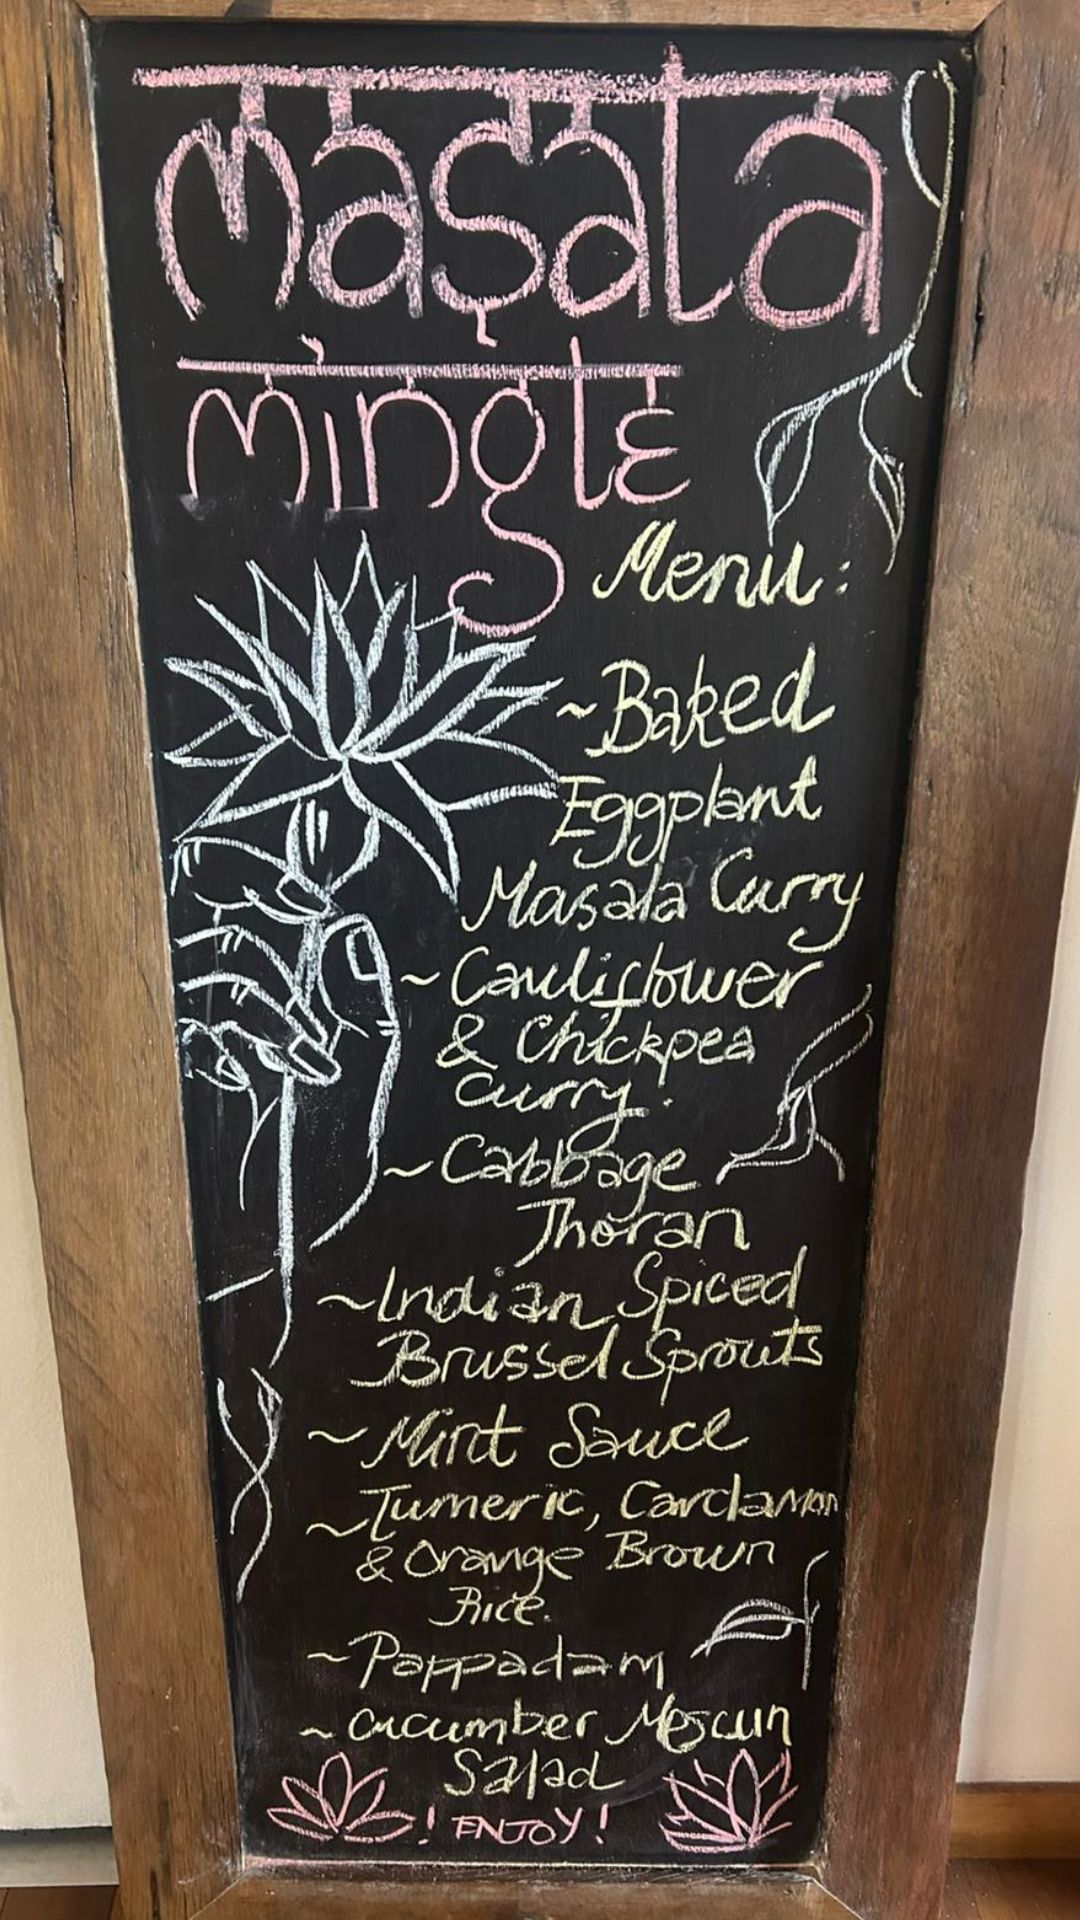 masala
mingle
Menu:
~Baked
Eggplant
Masala Curry
~Cauliflower
& Chickpea
Curry.
~Cabbage
Thoran
~Indian Spiced
Brussel Sprouts
~Mint Sauce
~Tumeric, Cardamon
& Orange Brown
Rice.
~Pappadam
~cucumber Mescun
Salad
! ENJOY!